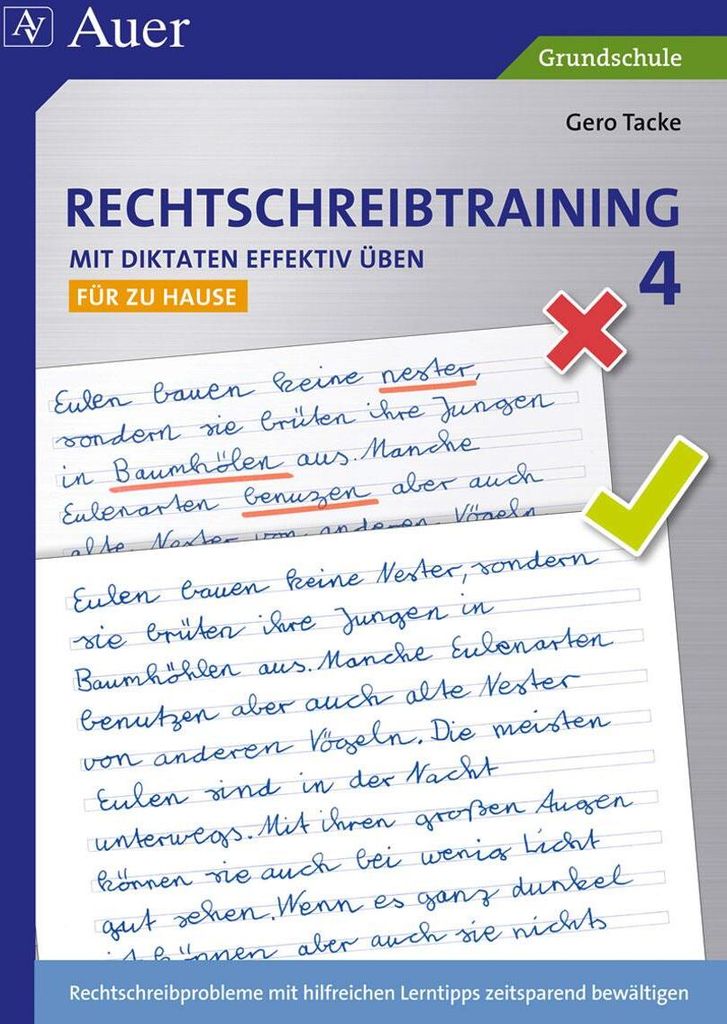 AV Auer
Grundschule
Gero Tacke
RECHTSCHREIBTRAINING
MIT DIKTATEN EFFEKTIV ÜBEN
4
FÜR ZU HAUSE
Eulen bauen keine nester,
sondern sie brüten ihre Jungen
in Baumhölen aus. Manche
Eulenarten benuzen aber auch
alte Nester von anderen Vögeln
Eulen bauen keine Nester, sondern
sie brüten ihre Jungen in
Baumhöhlen aus. Manche Eulenarten
benutzen aber auch alte Nester
von anderen Vögeln. Die meisten
Eulen sind in der Nacht
unterwegs. Mit ihren großen Augen
können sie auch bei wenig Licht
gut sehen. Wenn es ganz dunkel
ist können aber auch sie nichts
Rechtschreibprobleme mit hilfreichen Lerntipps zeitsparend bewältigen